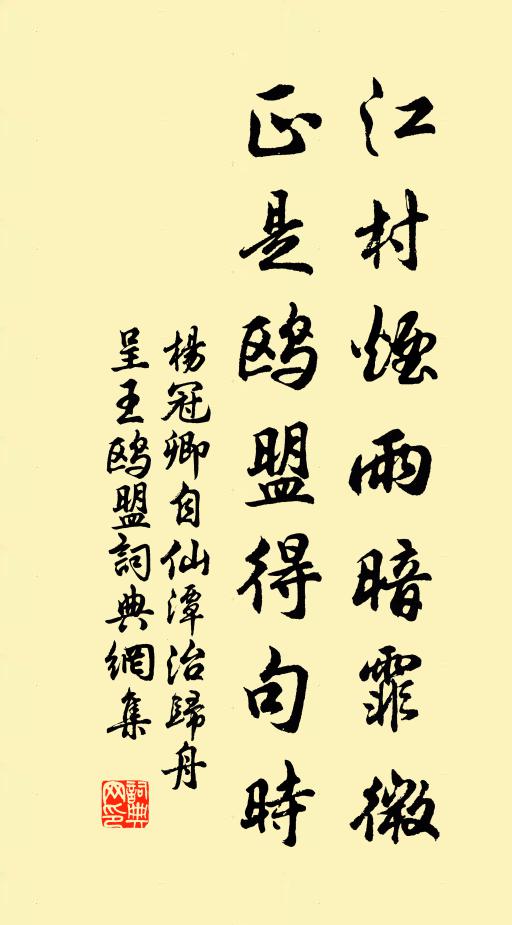 江村煙雨暗霏微
正是鸥盟得句時
楊冠卿自仙潭治歸舟
呈王鸥盟詞典網集
詞典网印